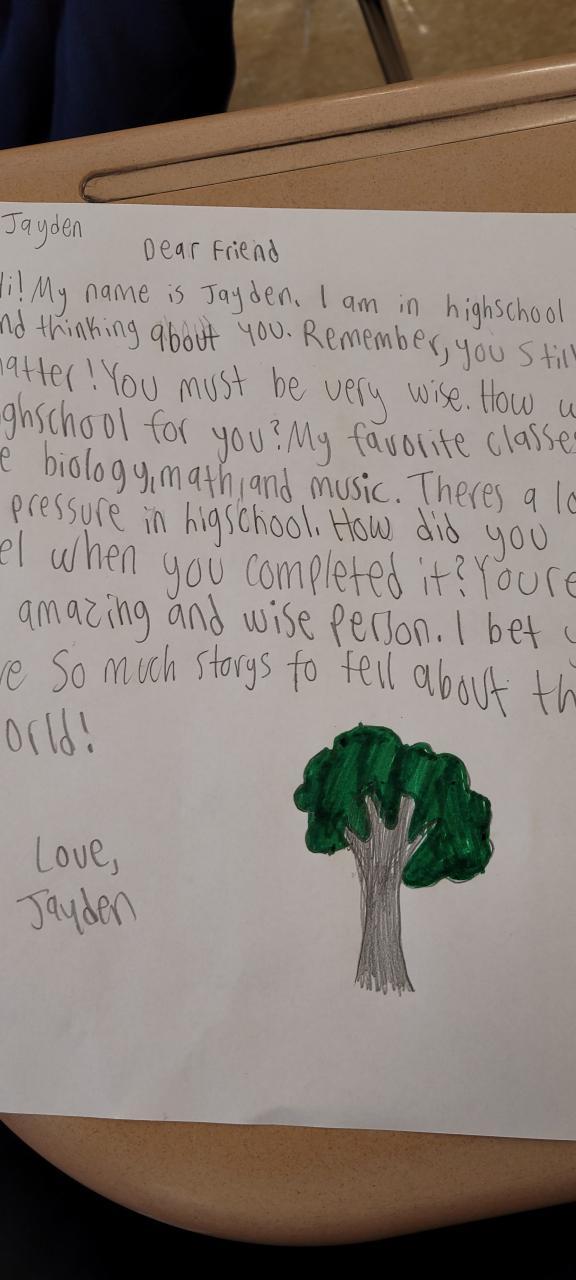 Jayden
Dear Friend
Hi! My name is Jayden. I am in highschool
and thinking about you. Remember, you still
matter! You must be very wise. How
highschool for you? My favorite classes
biology, math, and music. Theres a
pressure in higschool. How did you
when you completed it? Youre
amazing and wise person. I bet
so much storys to tell about
world!
Love,
Jayden